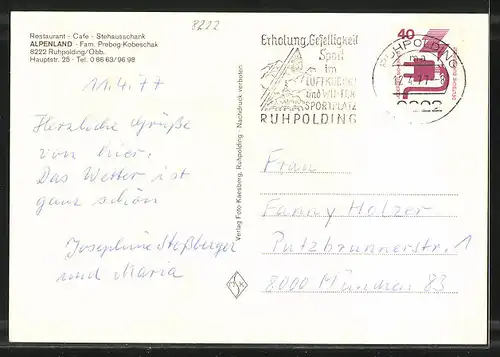 8222
Restaurant - Cafe - Stehausschank
ALPENLAND - Fam. Prebog-Kobeschak
8222 Ruhpolding/Obb.
Hauptstr. 25 - Tel. 0 86 63/96 98
11.4.77
Herzliche Grüße
von hier.
Das Wetter ist
ganz schön
Josephine Stoßberger
und Maria
Verlag Foto-Kaersberg, Ruhpolding · Nachdruck verboten
Erholung, Geselligkeit
Sport
im
LUFTKURORT
und WINTER
SPORTPLATZ
RUHPOLDING
RUHPOLDING
8222
40
Frau
Fanny Holzer
Putzbrunnerstr. 1
8000 München 83